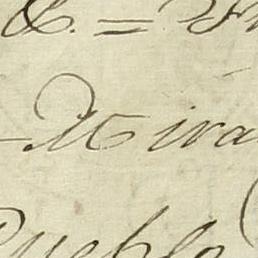 &. =
Mira
Pueblo